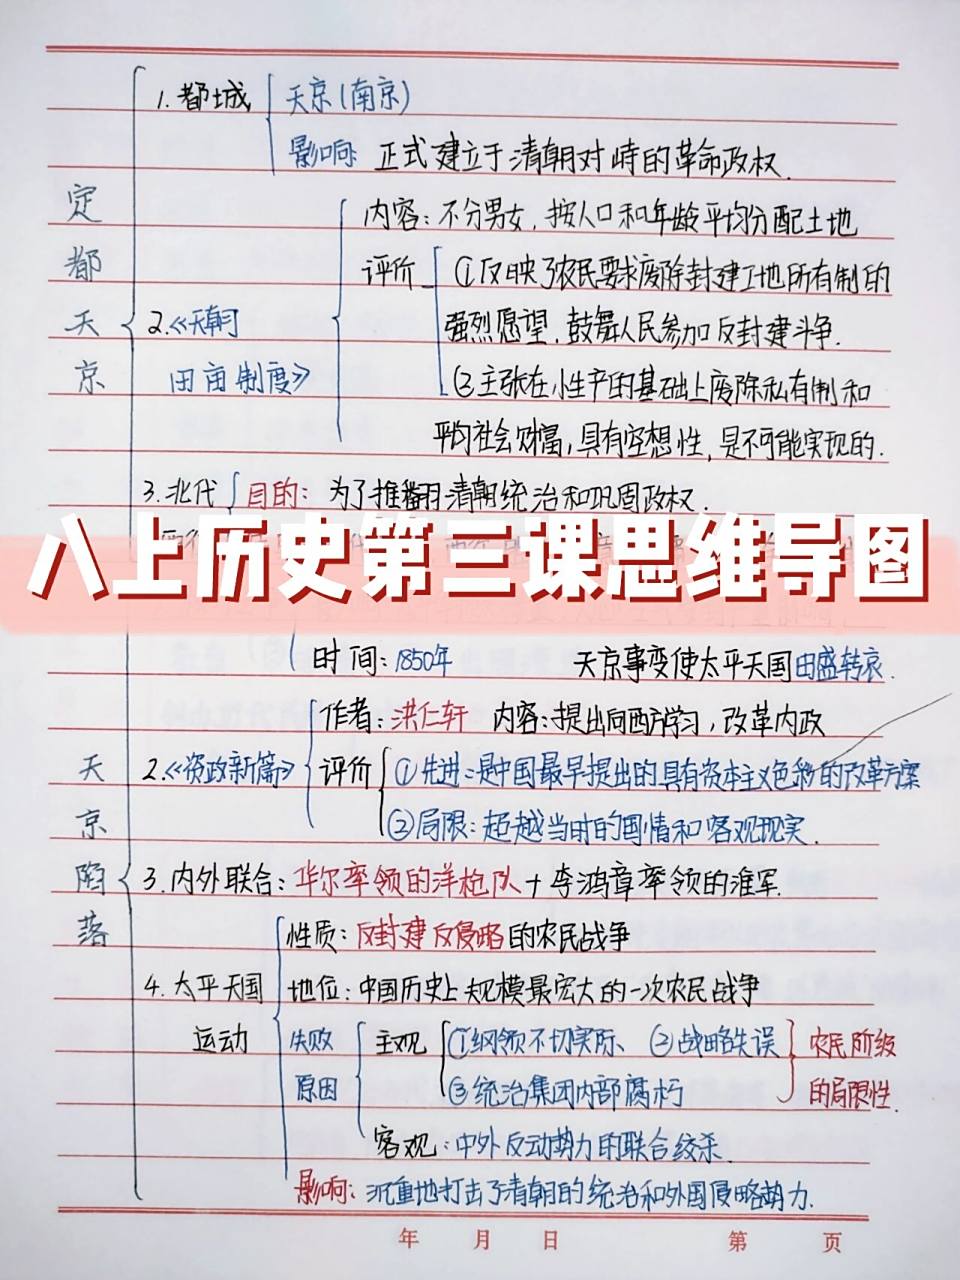 1. 都城 天京(南京)
影响 正式建立于清朝对峙的革命政权
定都天京
内容: 不分男女, 按人口和年龄平均分配土地
评价 ①反映了农民要求废除封建土地所有制的
强烈愿望, 鼓舞人民参加反封建斗争.
2.《天朝
田亩制度》
②主张在小生产的基础上废除私有制和
平均社会财富, 具有空想性, 是不可能实现的.
3. 北伐 目的: 为了推翻清朝统治和巩固政权.
八上历史第三课思维导图
时间: 1850年 天京事变使太平天国由盛转衰.
天京陷落
作者: 洪仁轩 内容: 提出向西方学习, 改革内政
2.《资政新篇》 评价 ①先进: 是中国最早提出的具有资本主义色彩的改革方案
②局限: 超越当时的国情和客观现实.
3. 内外联合: 华尔率领的洋枪队+李鸿章率领的淮军.
性质: 反封建反侵略的农民战争
4. 太平天国 地位: 中国历史上规模最宏大的一次农民战争
运动 失败 主观 ①纲领不切实际、 ②战略失误 农民阶级
原因 ③统治集团内部腐朽 的局限性.
客观: 中外反动势力的联合绞杀.
影响: 沉重地打击了清朝的统治和外国侵略势力.
年 月 日 第 页